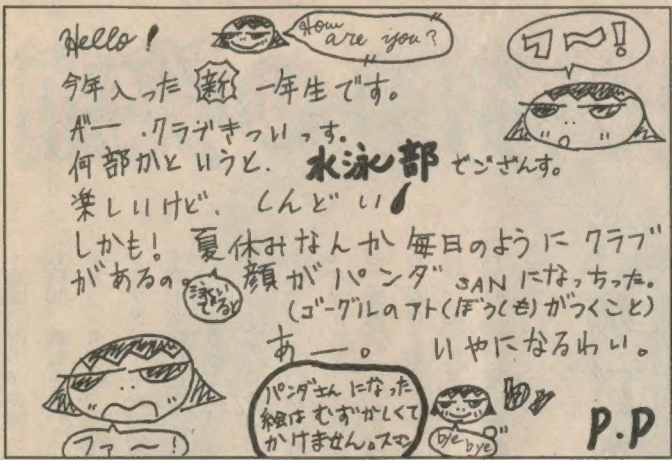 Hello!
"How are you?"
ワー!
今年入った 新 一年生です。
あー、クラブきついっす。
何部かというと、水泳部でござんす。
楽しいけど、しんどい!
しかも! 夏休みなんか毎日のようにクラブ
があるの。顔がパンダSANになっちった。
泳いでると
(ゴーグルのアト(ぼうしも)がつくこと)
あー。いやになるわい。
ファ〜!
パンダさんになった
絵はむずかしくて
かけません。スマン
bye
bye"
P.P